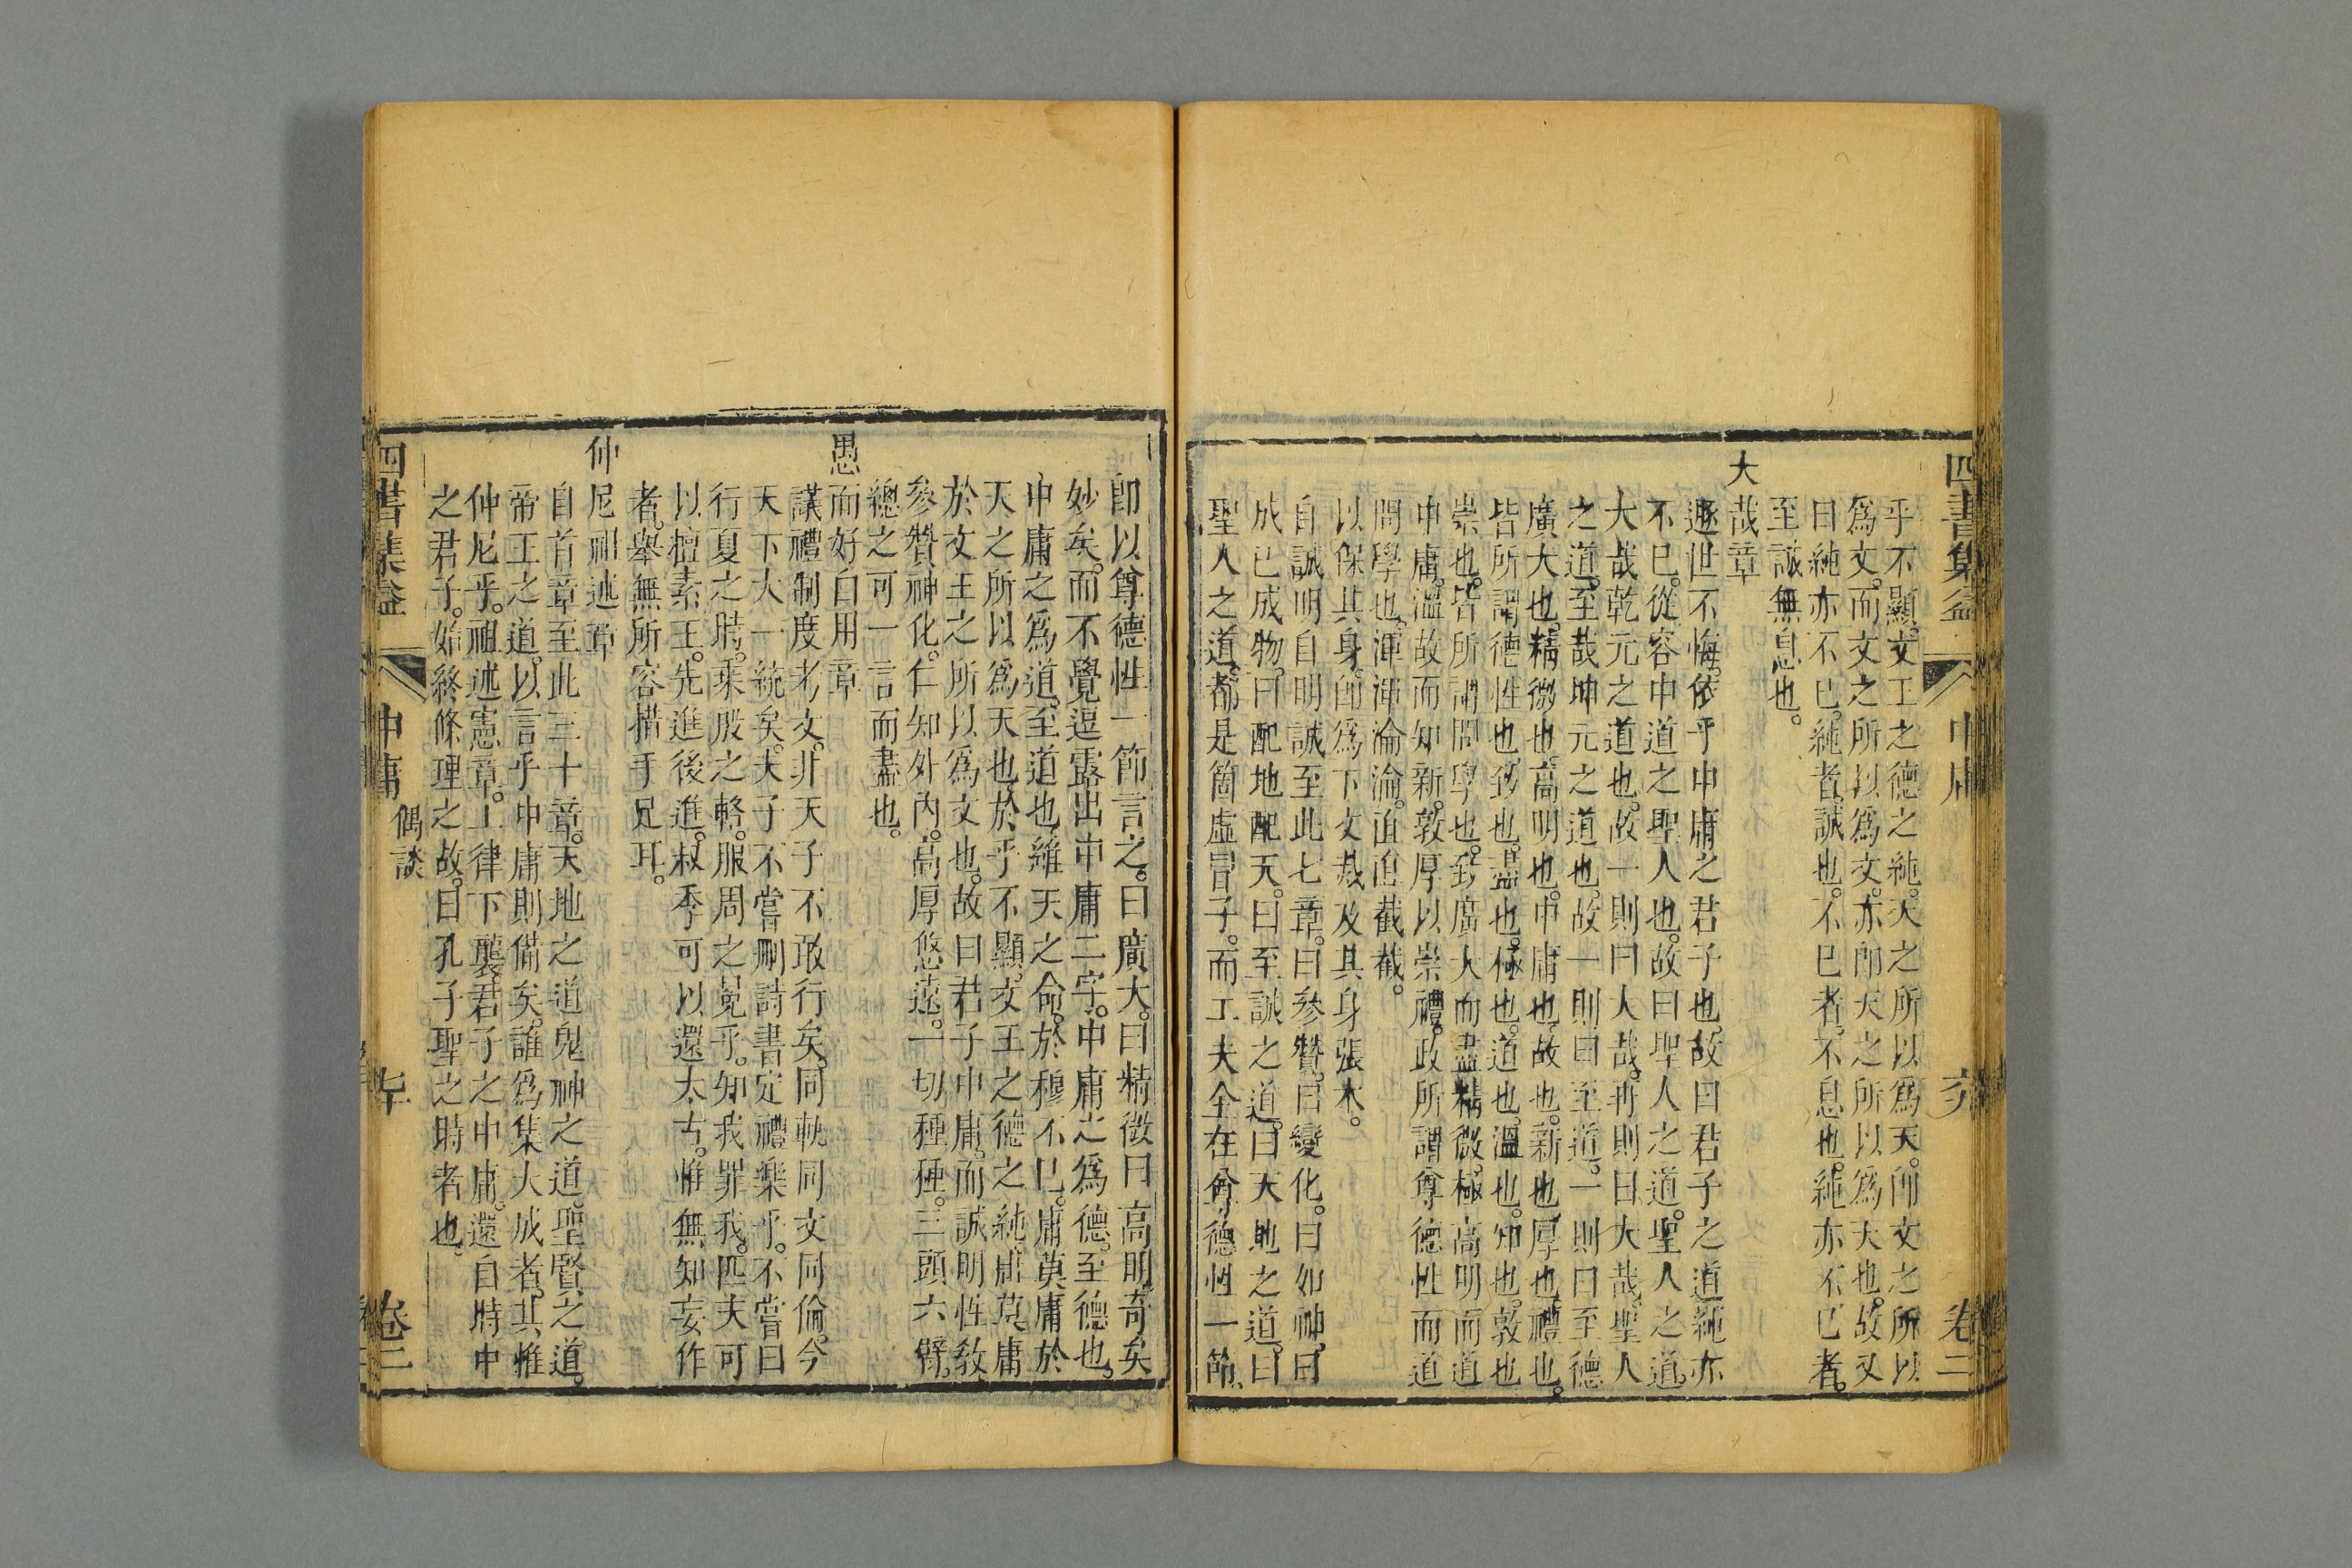 四書集益 中庸 卷二
乎不顯。文王之德之純。天之所以爲天。卽文之所以
爲文。而文之所以爲文。亦卽天之所以爲天也。故又
曰純亦不已。純者。誠也。不已者。不息也。純亦不已者。
至誠無息也。
大哉章
遯世不悔。依乎中庸之君子也。故曰君子之道。純亦
不已。從容中道之聖人也。故曰聖人之道。聖人之道。
大哉乾元之道也。故一則曰大哉。再則曰大哉。聖人
之道。至哉坤元之道也。故一則曰至道。一則曰至德
廣大也。精微也。高明也。中庸也。故也。新也。厚也。禮也。
皆所謂德性也。致也。盡也。極也。道也。溫也。知也。敦也。
崇也。皆所謂問學也。致廣大而盡精微。極高明而道
中庸。溫故而知新。敦厚以崇禮。政所謂尊德性而道
問學也。渾渾淪淪。直直截截。
以保其身。卽爲下文烖及其身張本。
自誠明自明誠至此七章。曰參贊。曰變化。曰如神。曰
成已成物。曰配地配天。曰至誠之道。曰天地之道。曰
聖人之道。都是箇虛冒子。而工夫全在尊德性一節。
卽以尊德性一節言之。曰廣大。曰精微曰高明。奇矣
妙矣。而不覺逗露出中庸二字。中庸之爲德。至德也。
中庸之爲道。至道也維天之命。於穆不已。庸莫庸於
天之所以爲天也。於乎不顯。文王之德之純庸莫庸
於文王之所以爲文也。故曰君子中庸。而誠明性教
參贊神化。仁知外內。高厚悠遠。一切種種。三頭六臂。
總之可一言而盡也。
愚而好自用章
議禮制度考文。非天子不敢行矣。同軌同文同倫。今
天下大一統矣。夫子不嘗刪詩書定禮樂乎。不嘗曰
行夏之時。乘殷之輅。服周之冕乎。知我罪我。匹夫可
以檀素王。先進後進。叔季可以還太古。惟無知妄作
者。舉無所容措手足耳。
仲尼祖述章
自首章至此三十章。天地之道鬼神之道。聖賢之道。
帝王之道。以言乎中庸則備矣。誰爲集大成者。其惟
仲尼乎。祖述憲章。上律下襲。君子之中庸。還自時中
之君子。始終條理之故。曰孔子聖之時者也。
四書集益 中庸 偶談 卷二